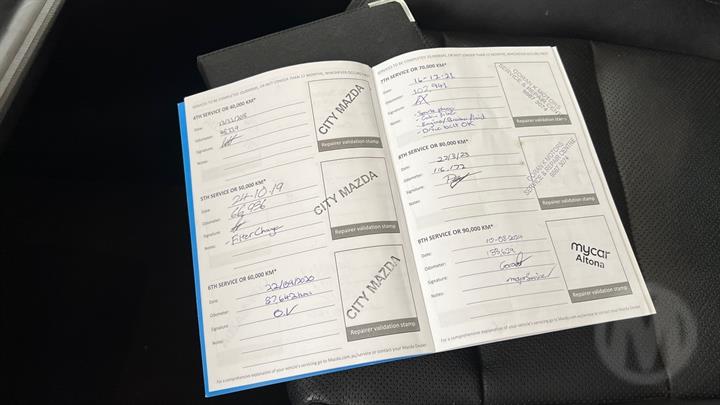 SERVICES TO BE COMPLETED
4TH SERVICE OR 40,000 KM*
Date:
Odometer:
Signature:
Notes:
CITY MAZDA
Repairer validation stamp
5TH SERVICE OR 50,000 KM*
Date: 24-10-19
Odometer: 66,936
Signature:
Notes: - Filter Change
CITY MAZDA
Repairer validation stamp
6TH SERVICE OR 60,000 KM*
Date: 22/09/2020
Odometer:
Signature: O.V
Notes:
CITY MAZDA
Repairer validation stamp
For a comprehensive explanation of your vehicle's servicing go to Mazda.com.au/service or contact your Mazda Dealer.
7TH SERVICE OR 70,000 KM*
Date: 16-12-21
Odometer: 102,941
Signature:
Notes:
- Drive belt OK
MOTORS
SERVICE & REPAIR CENTRE
Repairer validation stamp
8TH SERVICE OR 80,000 KM*
Date: 22/3/23
Odometer: 116,172
Signature:
Notes:
MOTORS
SERVICE & REPAIR CENTRE
Repairer validation stamp
9TH SERVICE OR 90,000 KM*
Date: 10-08-2024
Odometer: 133,629
Signature:
Notes: major Service
mycar
Altona
Repairer validation stamp
For a comprehensive explanation of your vehicle's servicing go to Mazda.com.au/service or contact your Mazda Dealer.
M